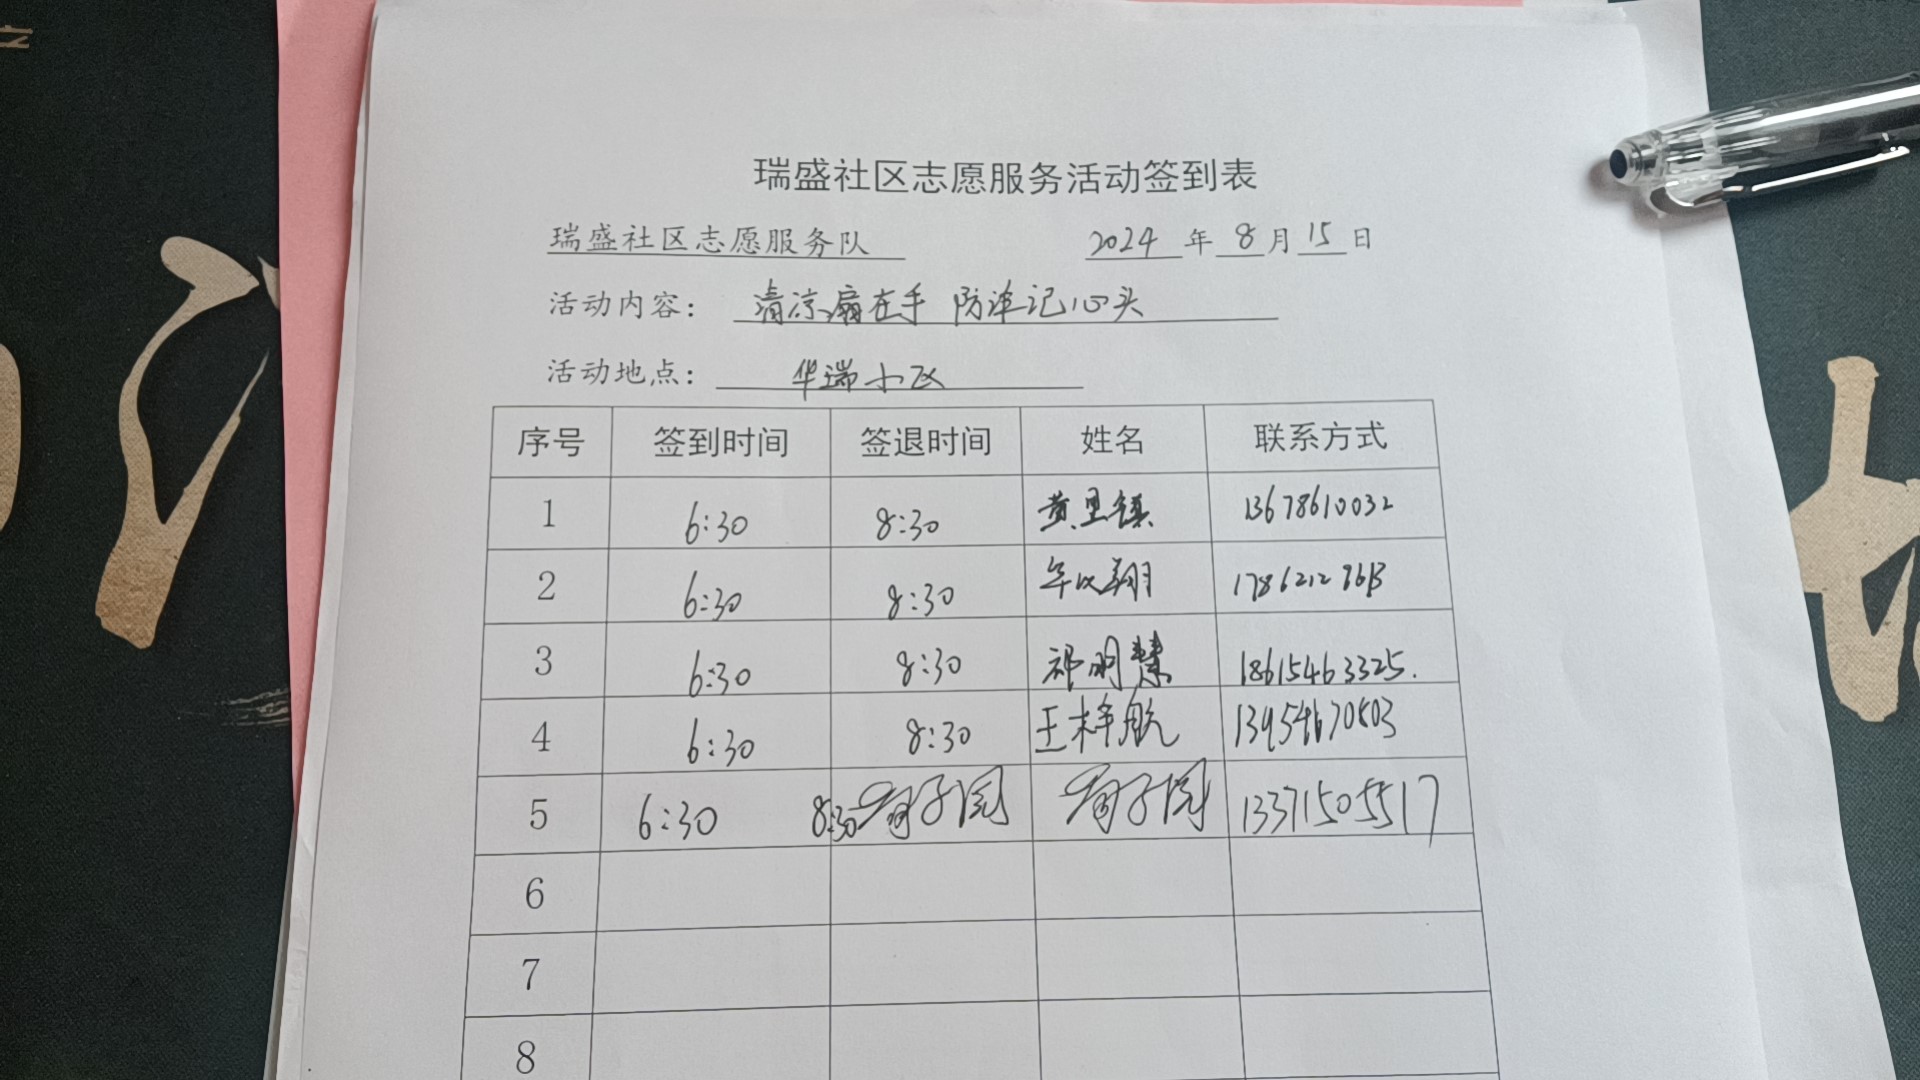 瑞盛社区志愿服务活动签到表
瑞盛社区志愿服务队 2024 年 8 月 15 日
活动内容: 清凉扇在手 防诈记心头
活动地点: 华瑞小区
序号 签到时间 签退时间 姓名 联系方式
1 6:30 8:30 黄里镇 13678610032
2 6:30 8:30 年以翔
3 6:30 8:30 祁明慧 18615463325.
4 6:30 8:30 王梓航 13954670503
5 6:30 8:30 13371505517
6
7
8